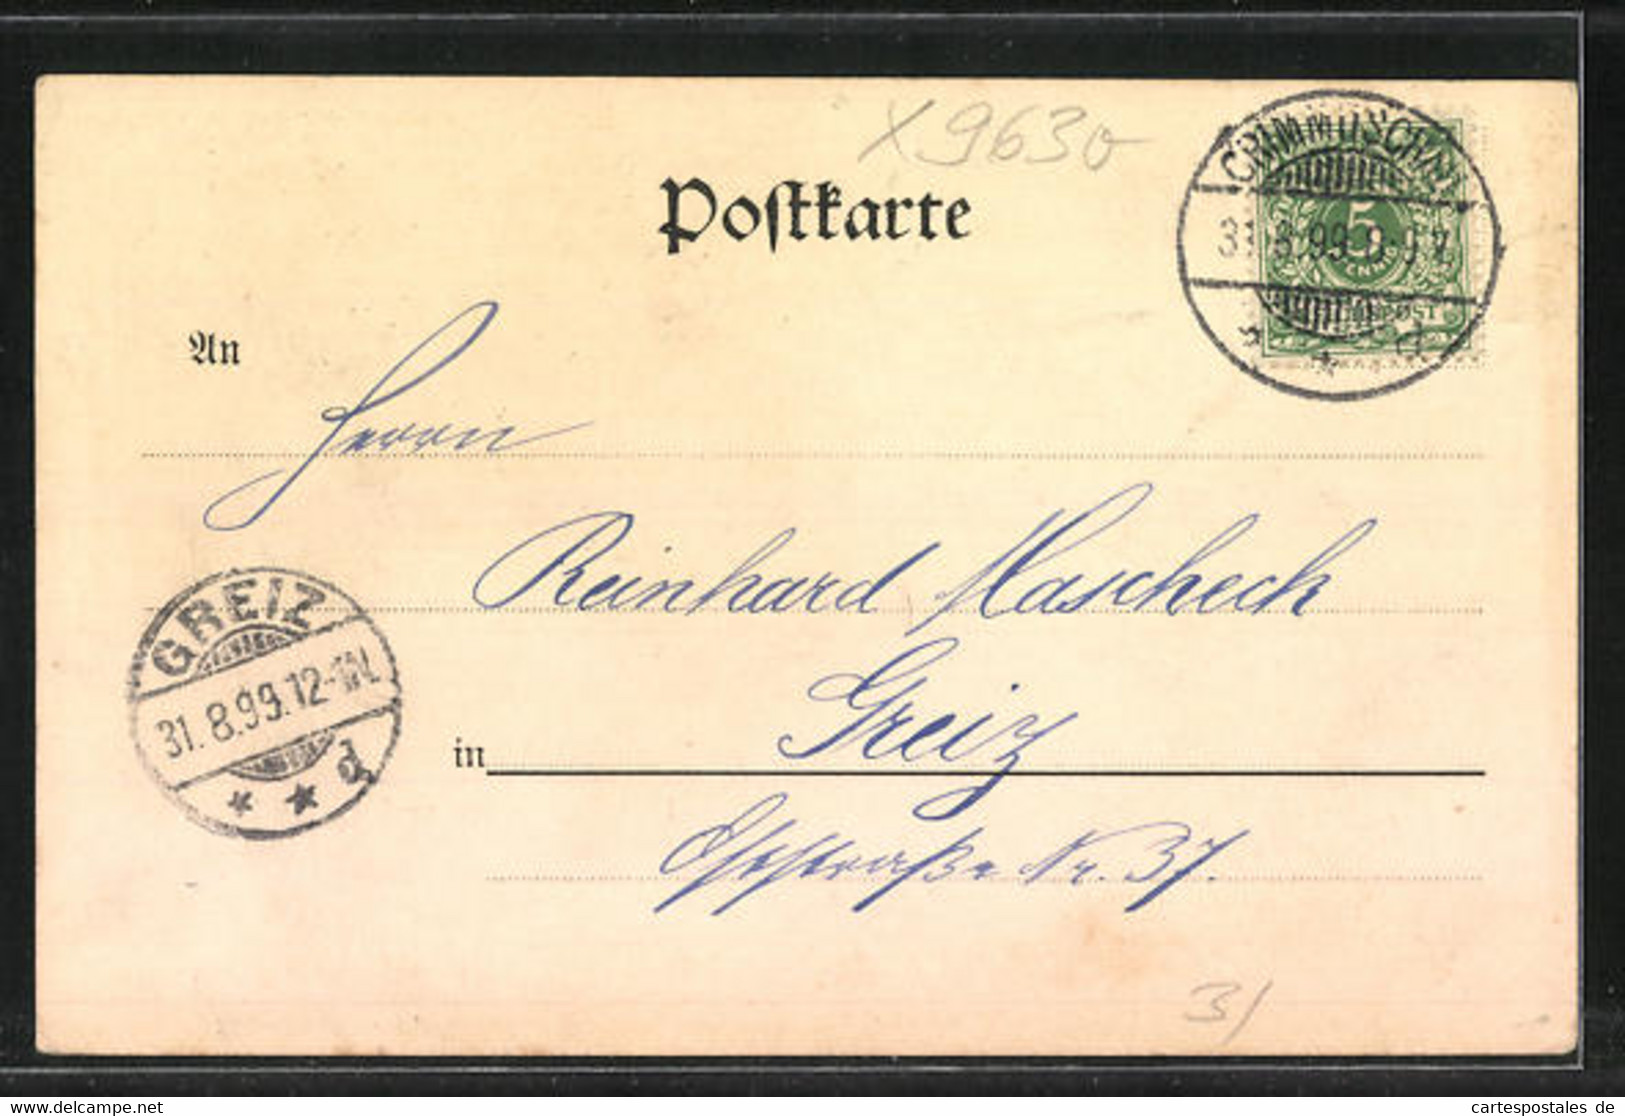 X9630
Postkarte
CRIMMITSCHAU
31.8.99. 8-9 V.
d
5
PFENNIG
REICHSPOST
An
Herrn
Reinhard Mascheck
GREIZ
31.8.99.12-1N.
d
in Greiz
Oststraße Nr. 37.
3/
cartespostales de